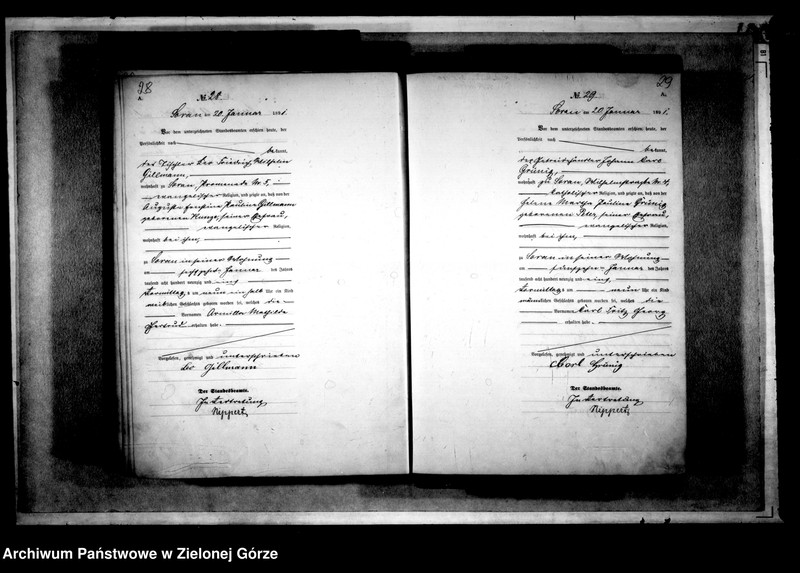 28
A.
№ 28
Sorau am 20. Januar 1891.
Vor dem unterzeichneten Standesbeamten erschien heute, der
Persönlichkeit nach
bekannt,
der Tischler Leo Friedrich Wilhelm
Gillmann,
wohnhaft zu Sorau, Promenade Nr. 5,
evangelischer Religion, und zeigte an, daß von der
Auguste Pauline Gillmann
geborenen seiner Ehefrau,
evangelischer Religion,
wohnhaft bei ihm,
zu Sorau in seiner Wohnung
am sechszehnten Januar des Jahres
tausend acht hundert neunzig und eins
Vormittags um neun ein halb Uhr ein Kind
weiblichen Geschlechts geboren worden sei, welches die
Vornamen Mathilde
Gertrud erhalten habe.
Vorgelesen, genehmigt und unterschrieben
Leo Gillmann
Der Standesbeamte.
In Vertretung
Nippert
29
A.
№ 29
Sorau am 20. Januar 1891.
Vor dem unterzeichneten Standesbeamten erschien heute, der
Persönlichkeit nach
bekannt,
der Getreidehändler Johann Carl
Grünig,
wohnhaft zu Sorau, Wilhelmstraße Nr.
katholischer Religion, und zeigte an, daß von der
Helene Martha Pauline Grünig
geborenen seiner Ehefrau,
evangelischer Religion,
wohnhaft bei ihm,
zu Sorau in seiner Wohnung
am fünfzehnten Januar des Jahres
tausend acht hundert neunzig und eins,
Vormittags um neun Uhr ein Kind
männlichen Geschlechts geboren worden sei, welches die
Vornamen Karl Fritz Georg
erhalten habe.
Vorgelesen, genehmigt und unterschrieben
Carl Grünig
Der Standesbeamte.
In Vertretung
Nippert
Archiwum Państwowe w Zielonej Górze